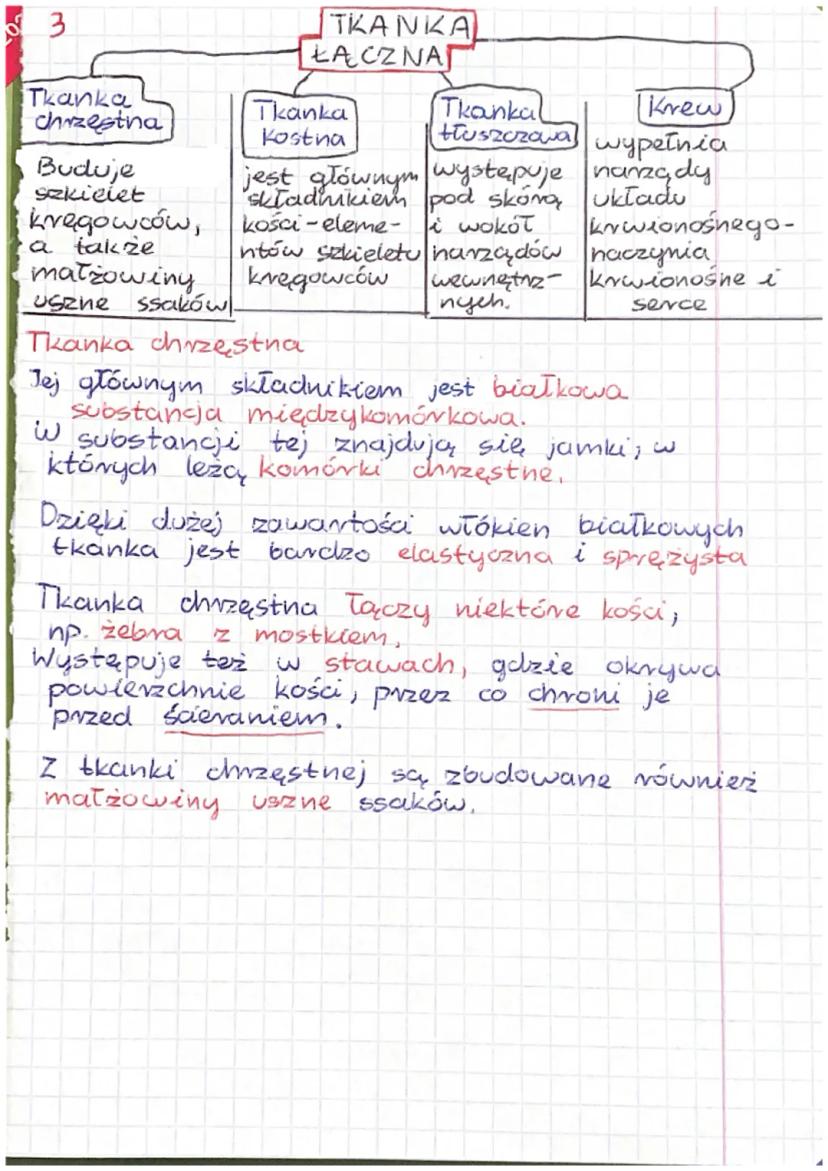 3
TKANKA
ŁĄCZNA
Tkanka
chrzęstna
Buduje
szkielet
kręgowców,
a także
małżowiny
uszne ssaków
Tkanka
kostna
jest głównym
składnikiem
kości-eleme-
ntów szkieletu
kręgowców
Tkanka
tłuszczowa
występuje
pod skórą
i wokół
narządów
wewnętrz-
nych.
Krew
wypełnia
narządy
układu
krwionośnego-
naczynia
krwionośne i
serce
Tkanka chrzęstna
Jej głównym składnikiem jest białkowa
substancja międzykomórkowa.
W substancji tej znajdują się jamki, w
których leżą komórki chrzęstne.
Dzięki dużej zawartości włókien białkowych
tkanka jest bardzo elastyczna i sprężysta
Tkanka chrzęstna łączy niektóre kości,
np. żebra z mostkiem.
Występuje też w stawach, gdzie okrywa
powierzchnie kości, przez co chroni je
przed ścieraniem.
Z tkanki chrzęstnej są zbudowane również
małżowiny uszne ssaków.